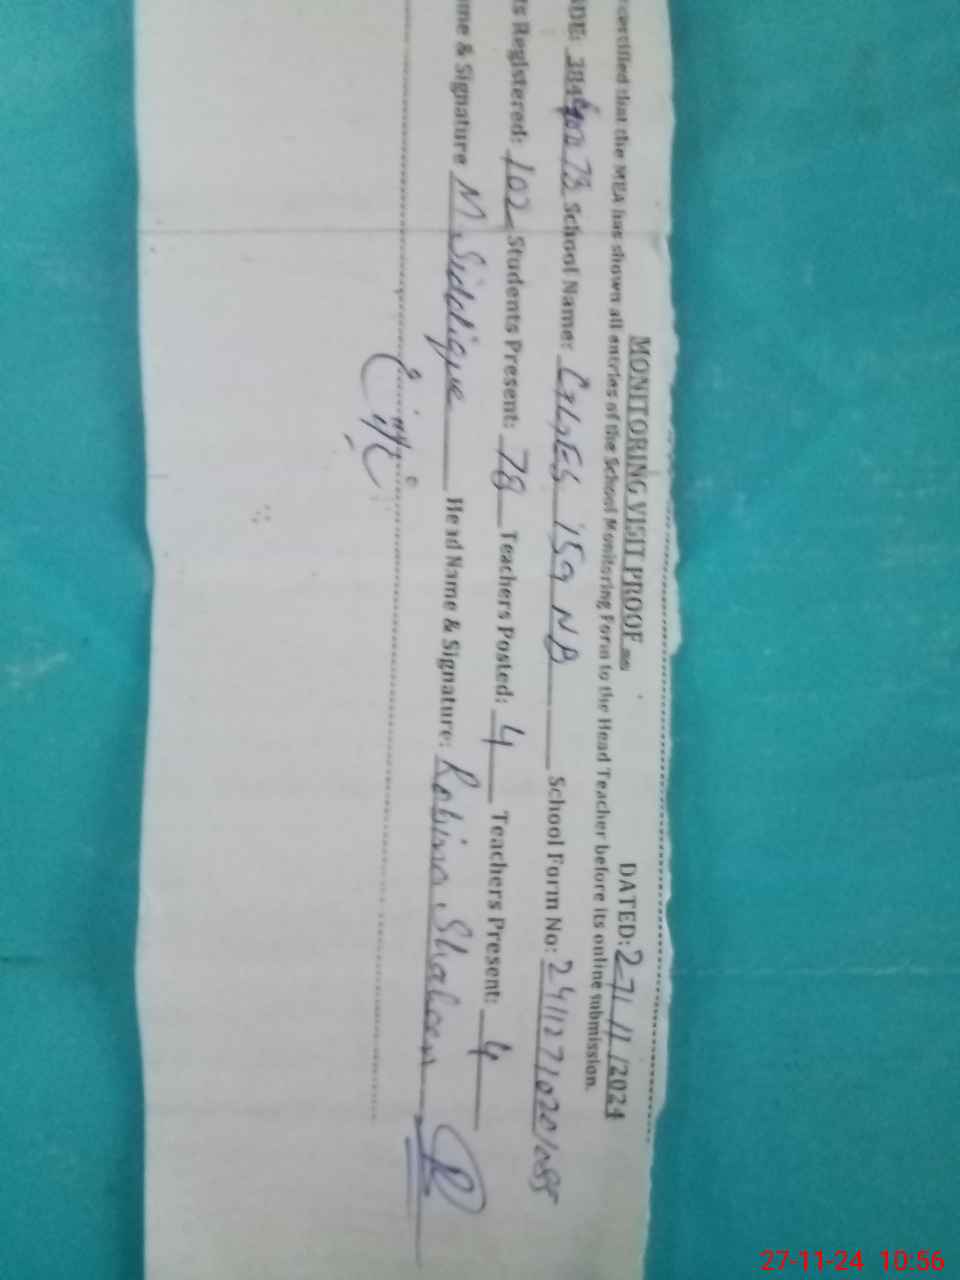 MONITORING VISIT PROOF DATED: 27/11/2024
certified that the MEA has shown all entries of the School Monitoring Form to the Head Teacher before its online submission.
School Name: GGES 159 NB School Form No: 241127102010
ts Registered: 102 Students Present: 78 Teachers Posted: 4 Teachers Present: 4
me & Signature M. Siddique Head Name & Signature: Robina Shaheen
27-11-24 10:56